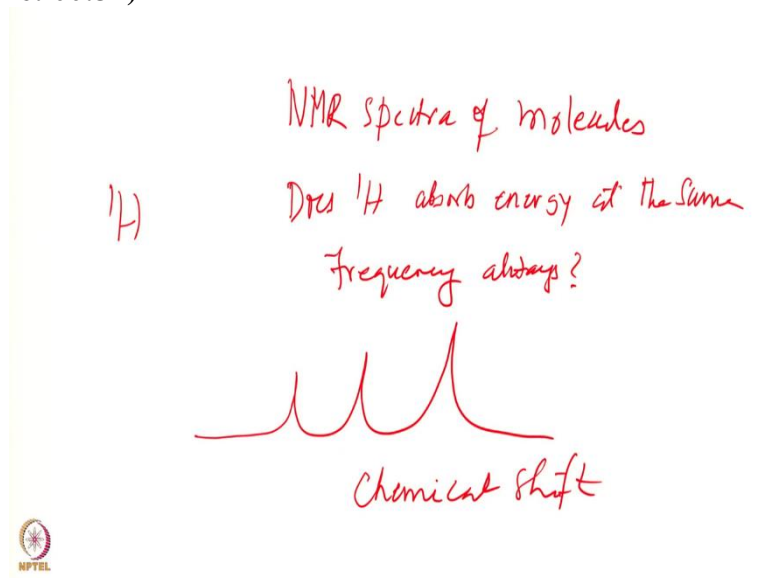 NMR spectra of molecules
¹H
Does ¹H absorb energy at the same
frequency always?
Chemical shift
NPTEL